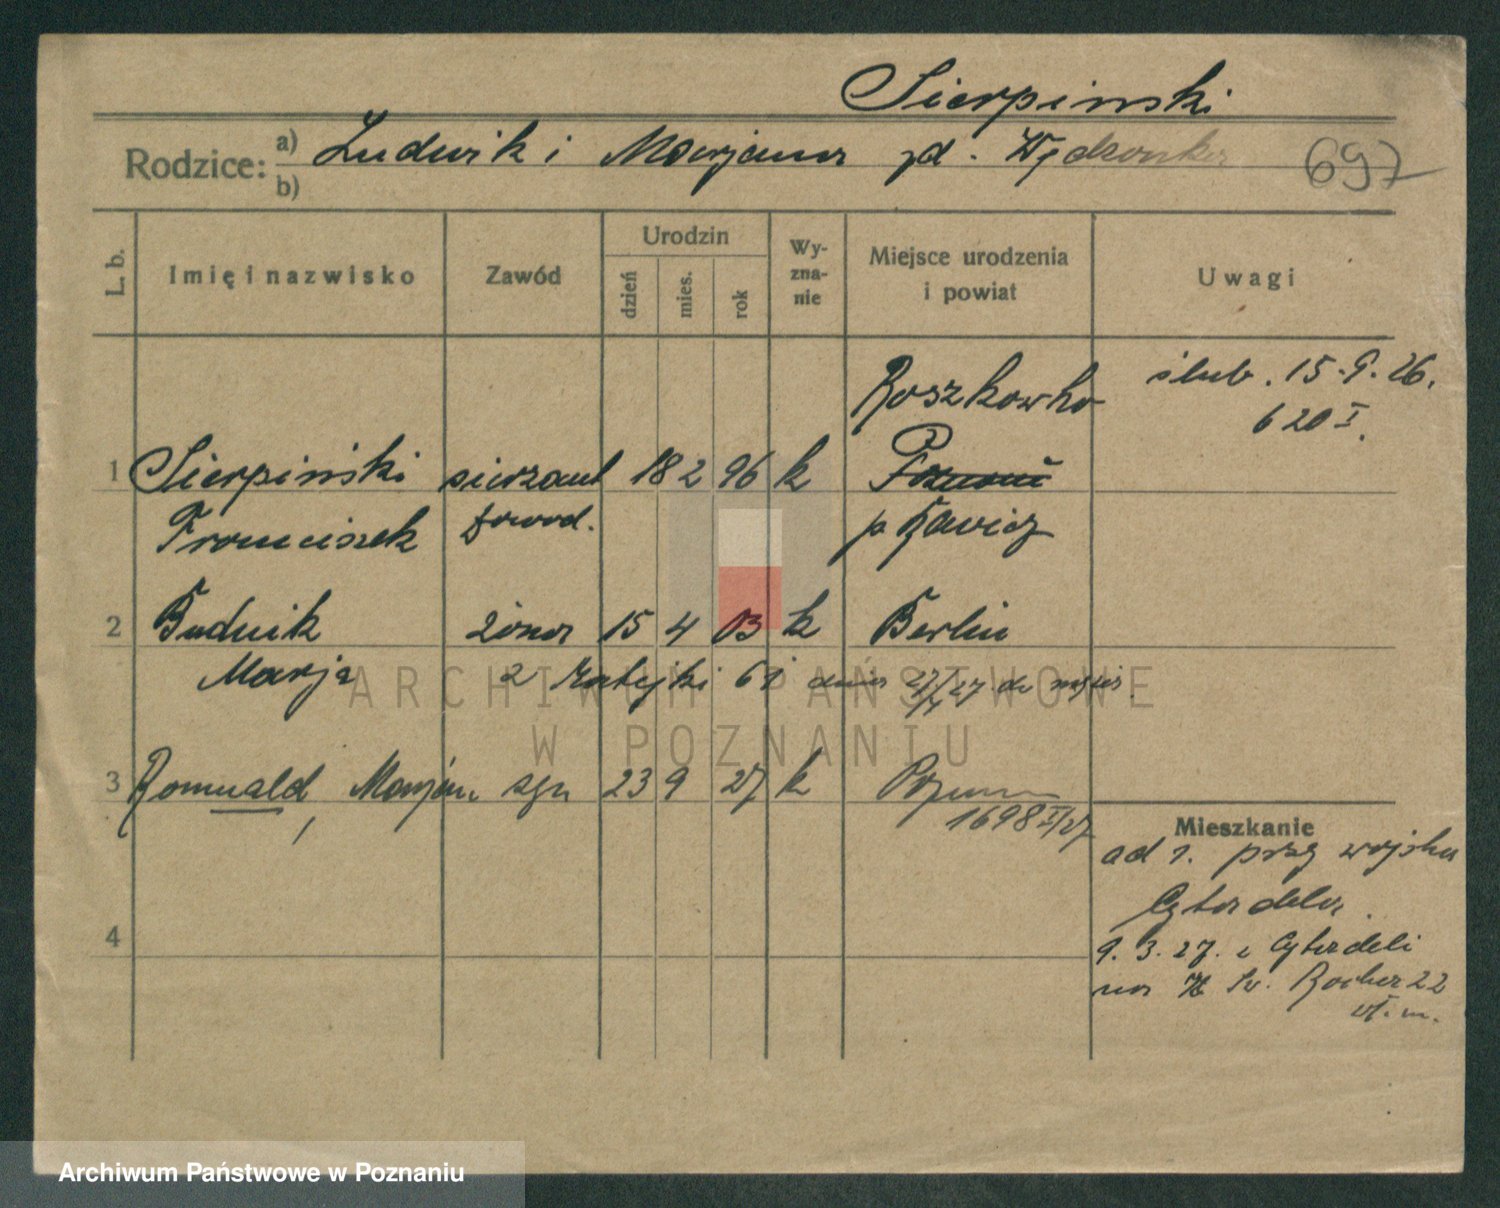 Sierpinski
Rodzice: a) Ludwik i Marjanna zd. Wędzonka
b)
697
L. b.
Imię i nazwisko
Zawód
Urodzin
dzień
mies.
rok
Wy-
zna-
nie
Miejsce urodzenia
i powiat
Uwagi
Roszkowko
ślub. 15.9.26.
620 I.
1 Sierpiński sierżant 18 2 96 k Poznań
Franciszek zawod. p Rawicz
2 Budnik żona 15 4 03 k Berlin
Marja z Ratejki 61 dnia 27/4 27 do męża
ARCHIWUM PAŃSTWOWE
W POZNANIU
3 Romuald, Marjan syn 23 9 27 k Poznań
1698 I/27
Mieszkanie
ad 1. przy wojsku
Cytadela.
9.3.27. z Cytadeli
na Św. Rocha 22
4
Archiwum Państwowe w Poznaniu